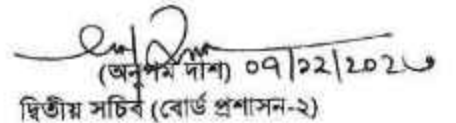 (অনুপম দাশ) ০৭/১২/২০২৩
দ্বিতীয় সচিব (বোর্ড প্রশাসন-২)